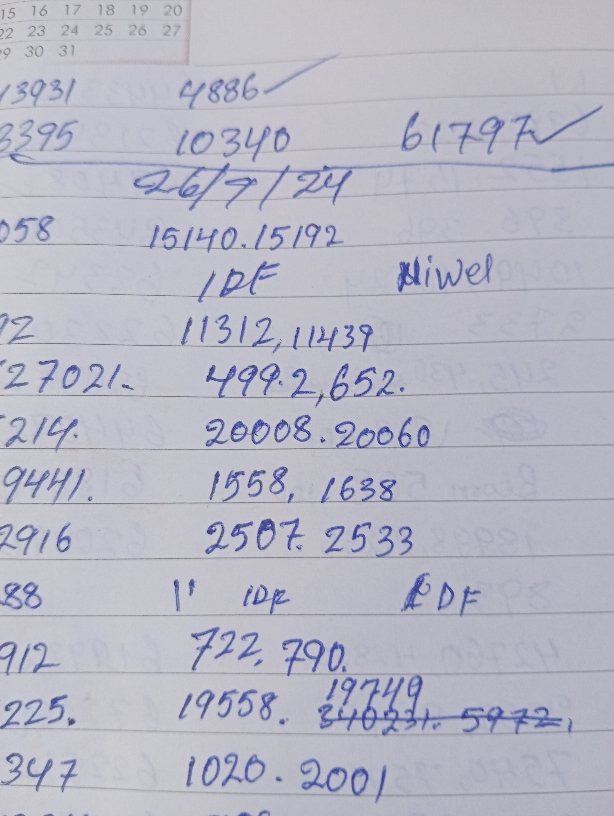 15 16 17 18 19 20
22 23 24 25 26 27
29 30 31
13931 4886
3395 10340 61797
26/7/24
058 15140.15192
IDF Niwel
92 11312, 11439
27021. 499.2, 652.
214. 20008.20060
9441. 1558, 1638
2916 2507. 2533
88 11 IDF IDF
912 722, 790.
19749
225. 19558. 340231. 5972,
347 1020. 2001